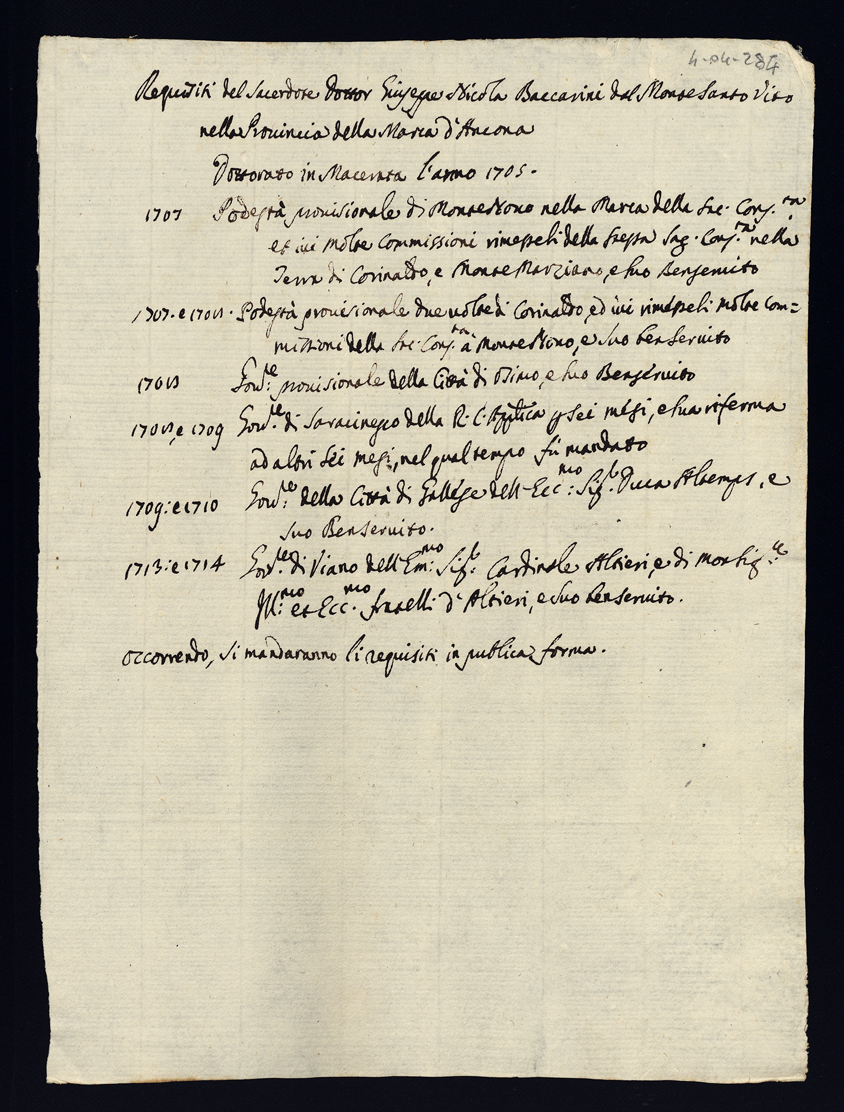 4-04-284
Requisiti del Sacerdote Dottor Giuseppe Nicola Baccarini dal Monte Santo Vito
nella Provincia della Marca d'Ancona
Dottorato in Macerata l'anno 1705.
1707 Podestà provisionale di Monte Nono nella Marca della Sac. Cong.ne
et ivi molte Commissioni rimesseli della stessa Sag. Cong.ne nella
Terra di Corinaldo, e Monte Marziano, e suo Benservito
1707. e 1708. Podestà provisionale due volte di Corinaldo, ed ivi rimesseli molte com=
missioni della Sac. Cong.ne à Monte Nono, e suo benservito
1708 Gov.re provisionale della Città di Osimo, e suo Benservito
1708, e 1709 Gov.re di Saracinesco della R. C. App.lica p sei mesi, e sua riferma
ad altri sei mesi, nel qual tempo fù mandato
1709. e 1710 Gov.re della Città di Gallese dell'Ecc.mo Sig.r Duca Altemps, e
suo Benservito.
1713. e 1714 Gov.re di Viano dell'Em.mo Sig.r Cardinale Altieri, e di Monsig.re
Ill.mo et Ecc.mo fratelli d'Altieri, e suo benservito.
Occorrendo, si mandaranno li requisiti in publica forma.